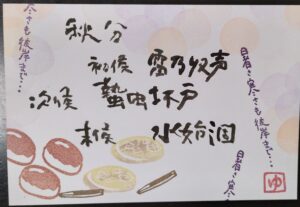 秋分
初候 雷乃収声
次候 蟄虫坏戸
末候 水始涸
暑さ寒さも彼岸まで…
暑さ寒さ
寒さも彼岸まで…
ゆ